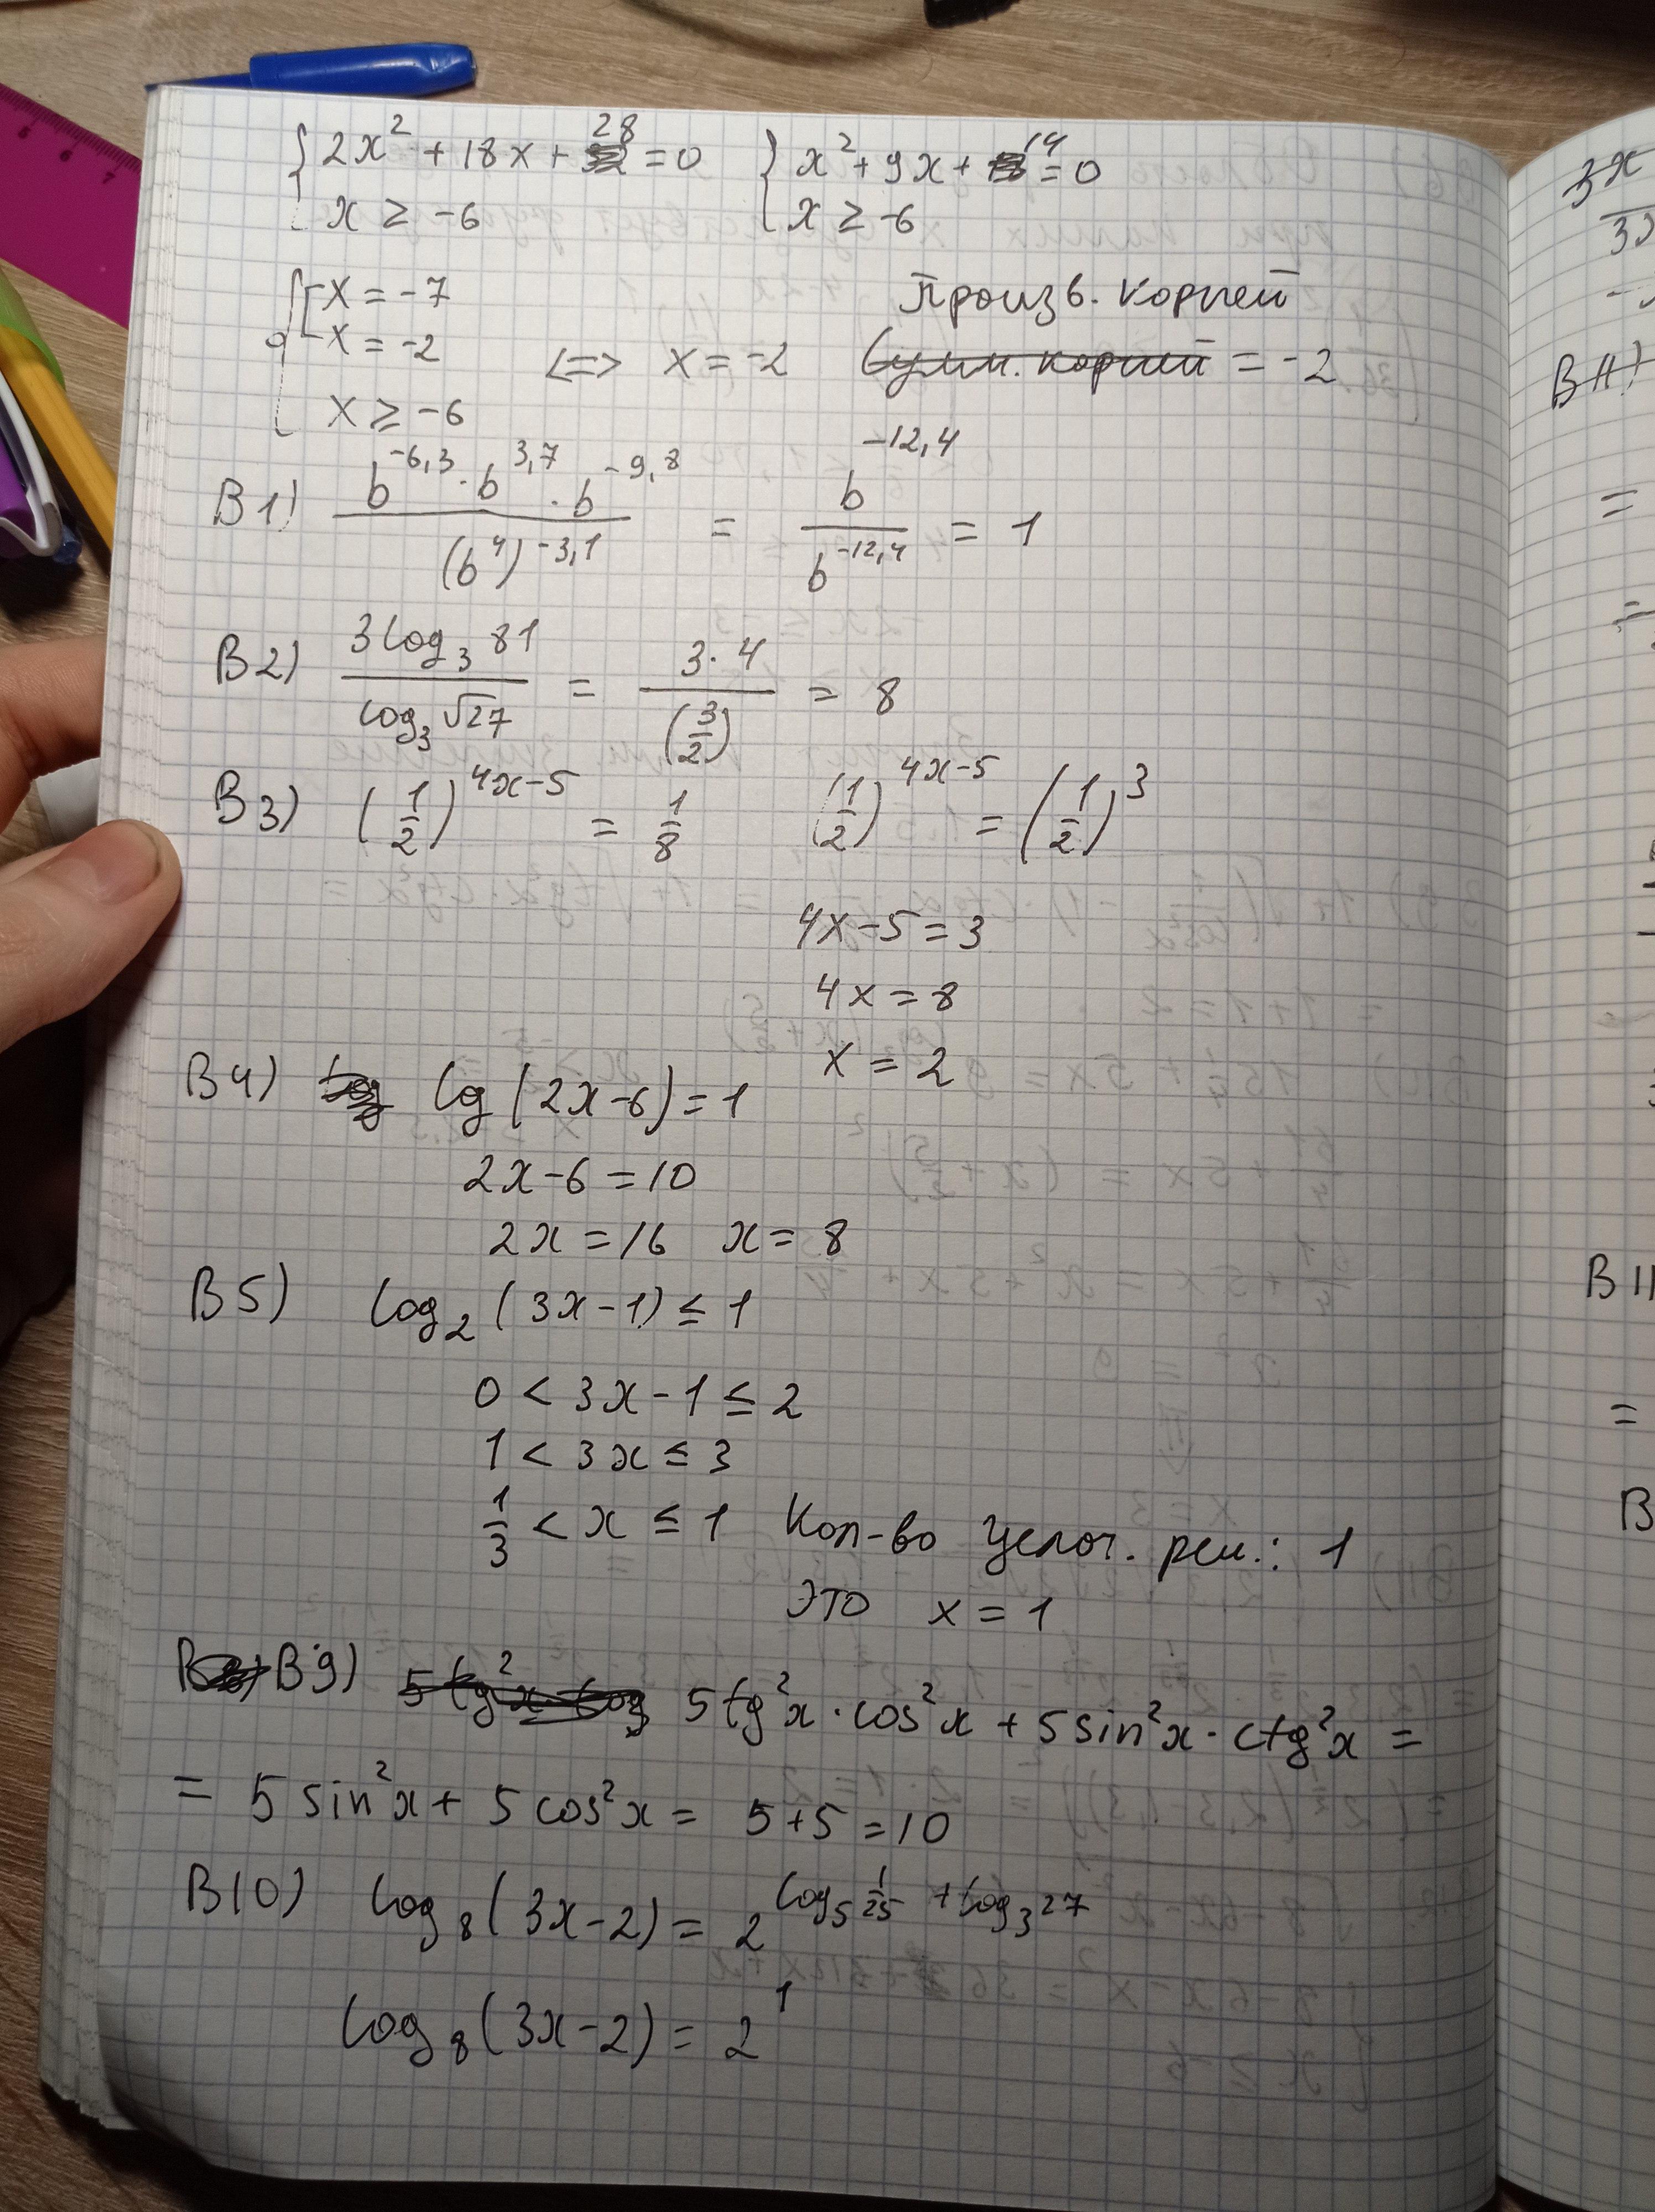 { 2x² + 18x + 28 = 0 { x² + 9x + 14 = 0
x ≥ -6 x ≥ -6
{ [ x = -7 Произв. корней
x = -2 <=> x = -2 Сумм. корней = -2
x ≥ -6
B1) (b^(-6,3) · b^(3,7) · b^(-9,8)) / (b⁴)^(-3,1) = b^(-12,4) / b^(-12,4) = 1
B2) 3log₃ 81 / log₃ √27 = 3·4 / (3/2) = 8
B3) (1/2)^(4x-5) = 1/8 (1/2)^(4x-5) = (1/2)³
4x-5 = 3
4x = 8
x = 2
B4) log lg(2x-6) = 1
2x-6 = 10
2x = 16 x = 8
B5) log₂(3x-1) ≤ 1
0 < 3x-1 ≤ 2
1 < 3x ≤ 3
1/3 < x ≤ 1 Кол-во целоч. реш.: 1
это x = 1
B9) 5tg²x · log 5tg²x · cos²x + 5sin²x · ctg²x =
= 5sin²x + 5cos²x = 5+5 = 10
B10) log₈(3x-2) = 2^(log₅ 1/25 + log₃ 27)
log₈(3x-2) = 2¹
3x
B11)
=
=
B11
=
B